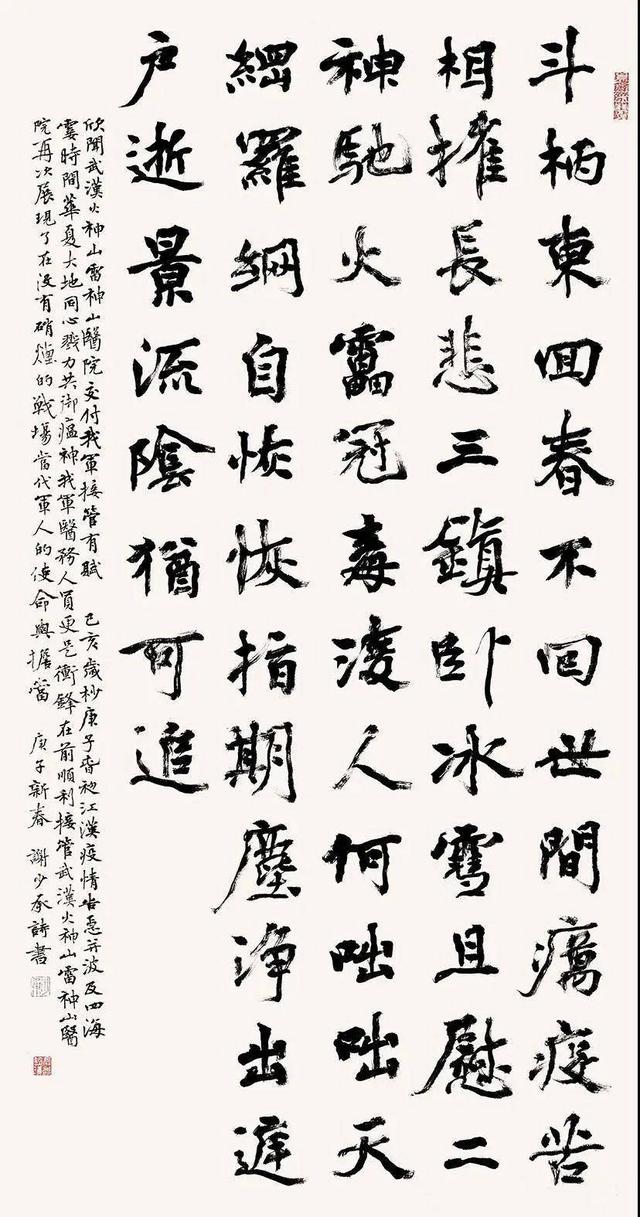 斗柄東囬春不回世間癘疫苦
相摧長悲三鎮卧冰雪且慰二
神馳火靁冠毒凌人何咄咄天
網羅綱自恢恢指期塵淨出遲
户逝景流陰猶可追
欣聞武漢火神山雷神山醫院交付我軍接管有賦 己亥歲杪庚子春初江漢疫情告急并波及四海
霎時間華夏大地同心戮力共御瘟神我軍醫務人員更是衝鋒在前順利接管武漢火神山雷神山醫
院再次展現了在没有硝煙的戰場當代軍人的使命與擔當 庚子新春 謝少承詩書